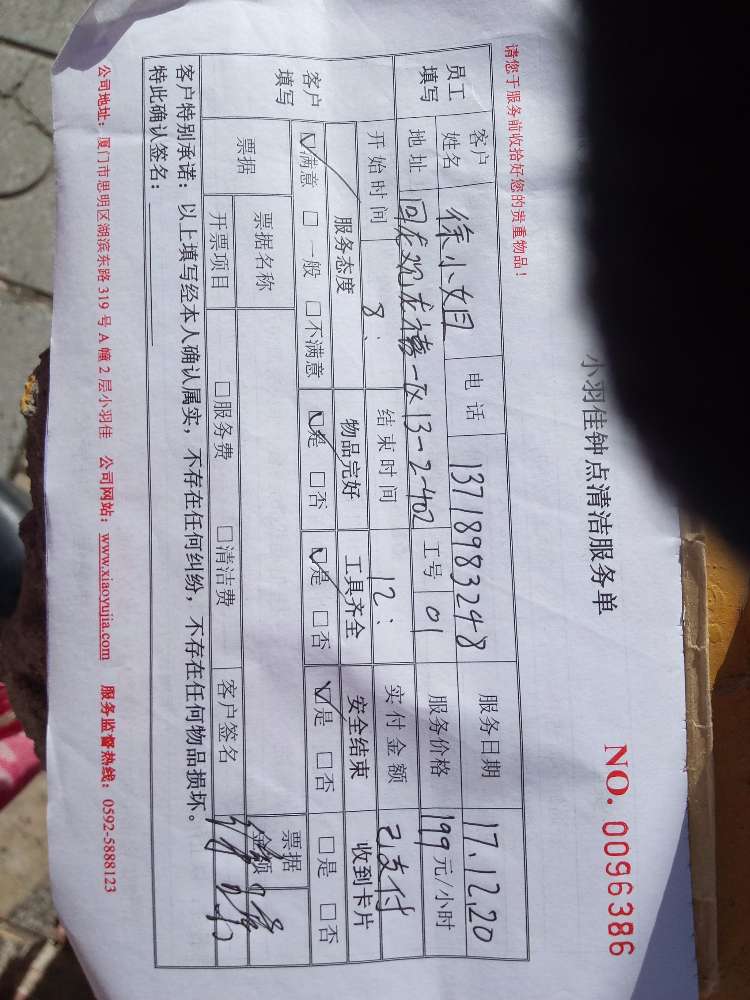 小羽佳钟点清洁服务单
NO. 0096386
请您于服务前收拾好您的贵重物品！
员工填写 客户姓名 徐小妲 电话 13718983248 服务日期 17.12.20
地址 回龙观龙禧一区13-2-402 工号 01 服务价格 199元/小时
客户填写 开始时间 8： 结束时间 12： 实付金额 已支付
服务态度 物品完好 工具齐全 安全结束 收到卡片
☑满意 □一般 □不满意 ☑是 □否 ☑是 □否 ☑是 □否 □是 □否
票据 票据名称 票据金额
开票项目 □服务费 □清洁费 客户签名
客户特别承诺：以上填写经本人确认属实，不存在任何纠纷，不存在任何物品损坏。
特此确认签名：
公司地址：厦门市思明区湖滨东路319号A幢2层小羽佳 公司网站：www.xiaoyujia.com 服务监督热线：0592-5888123